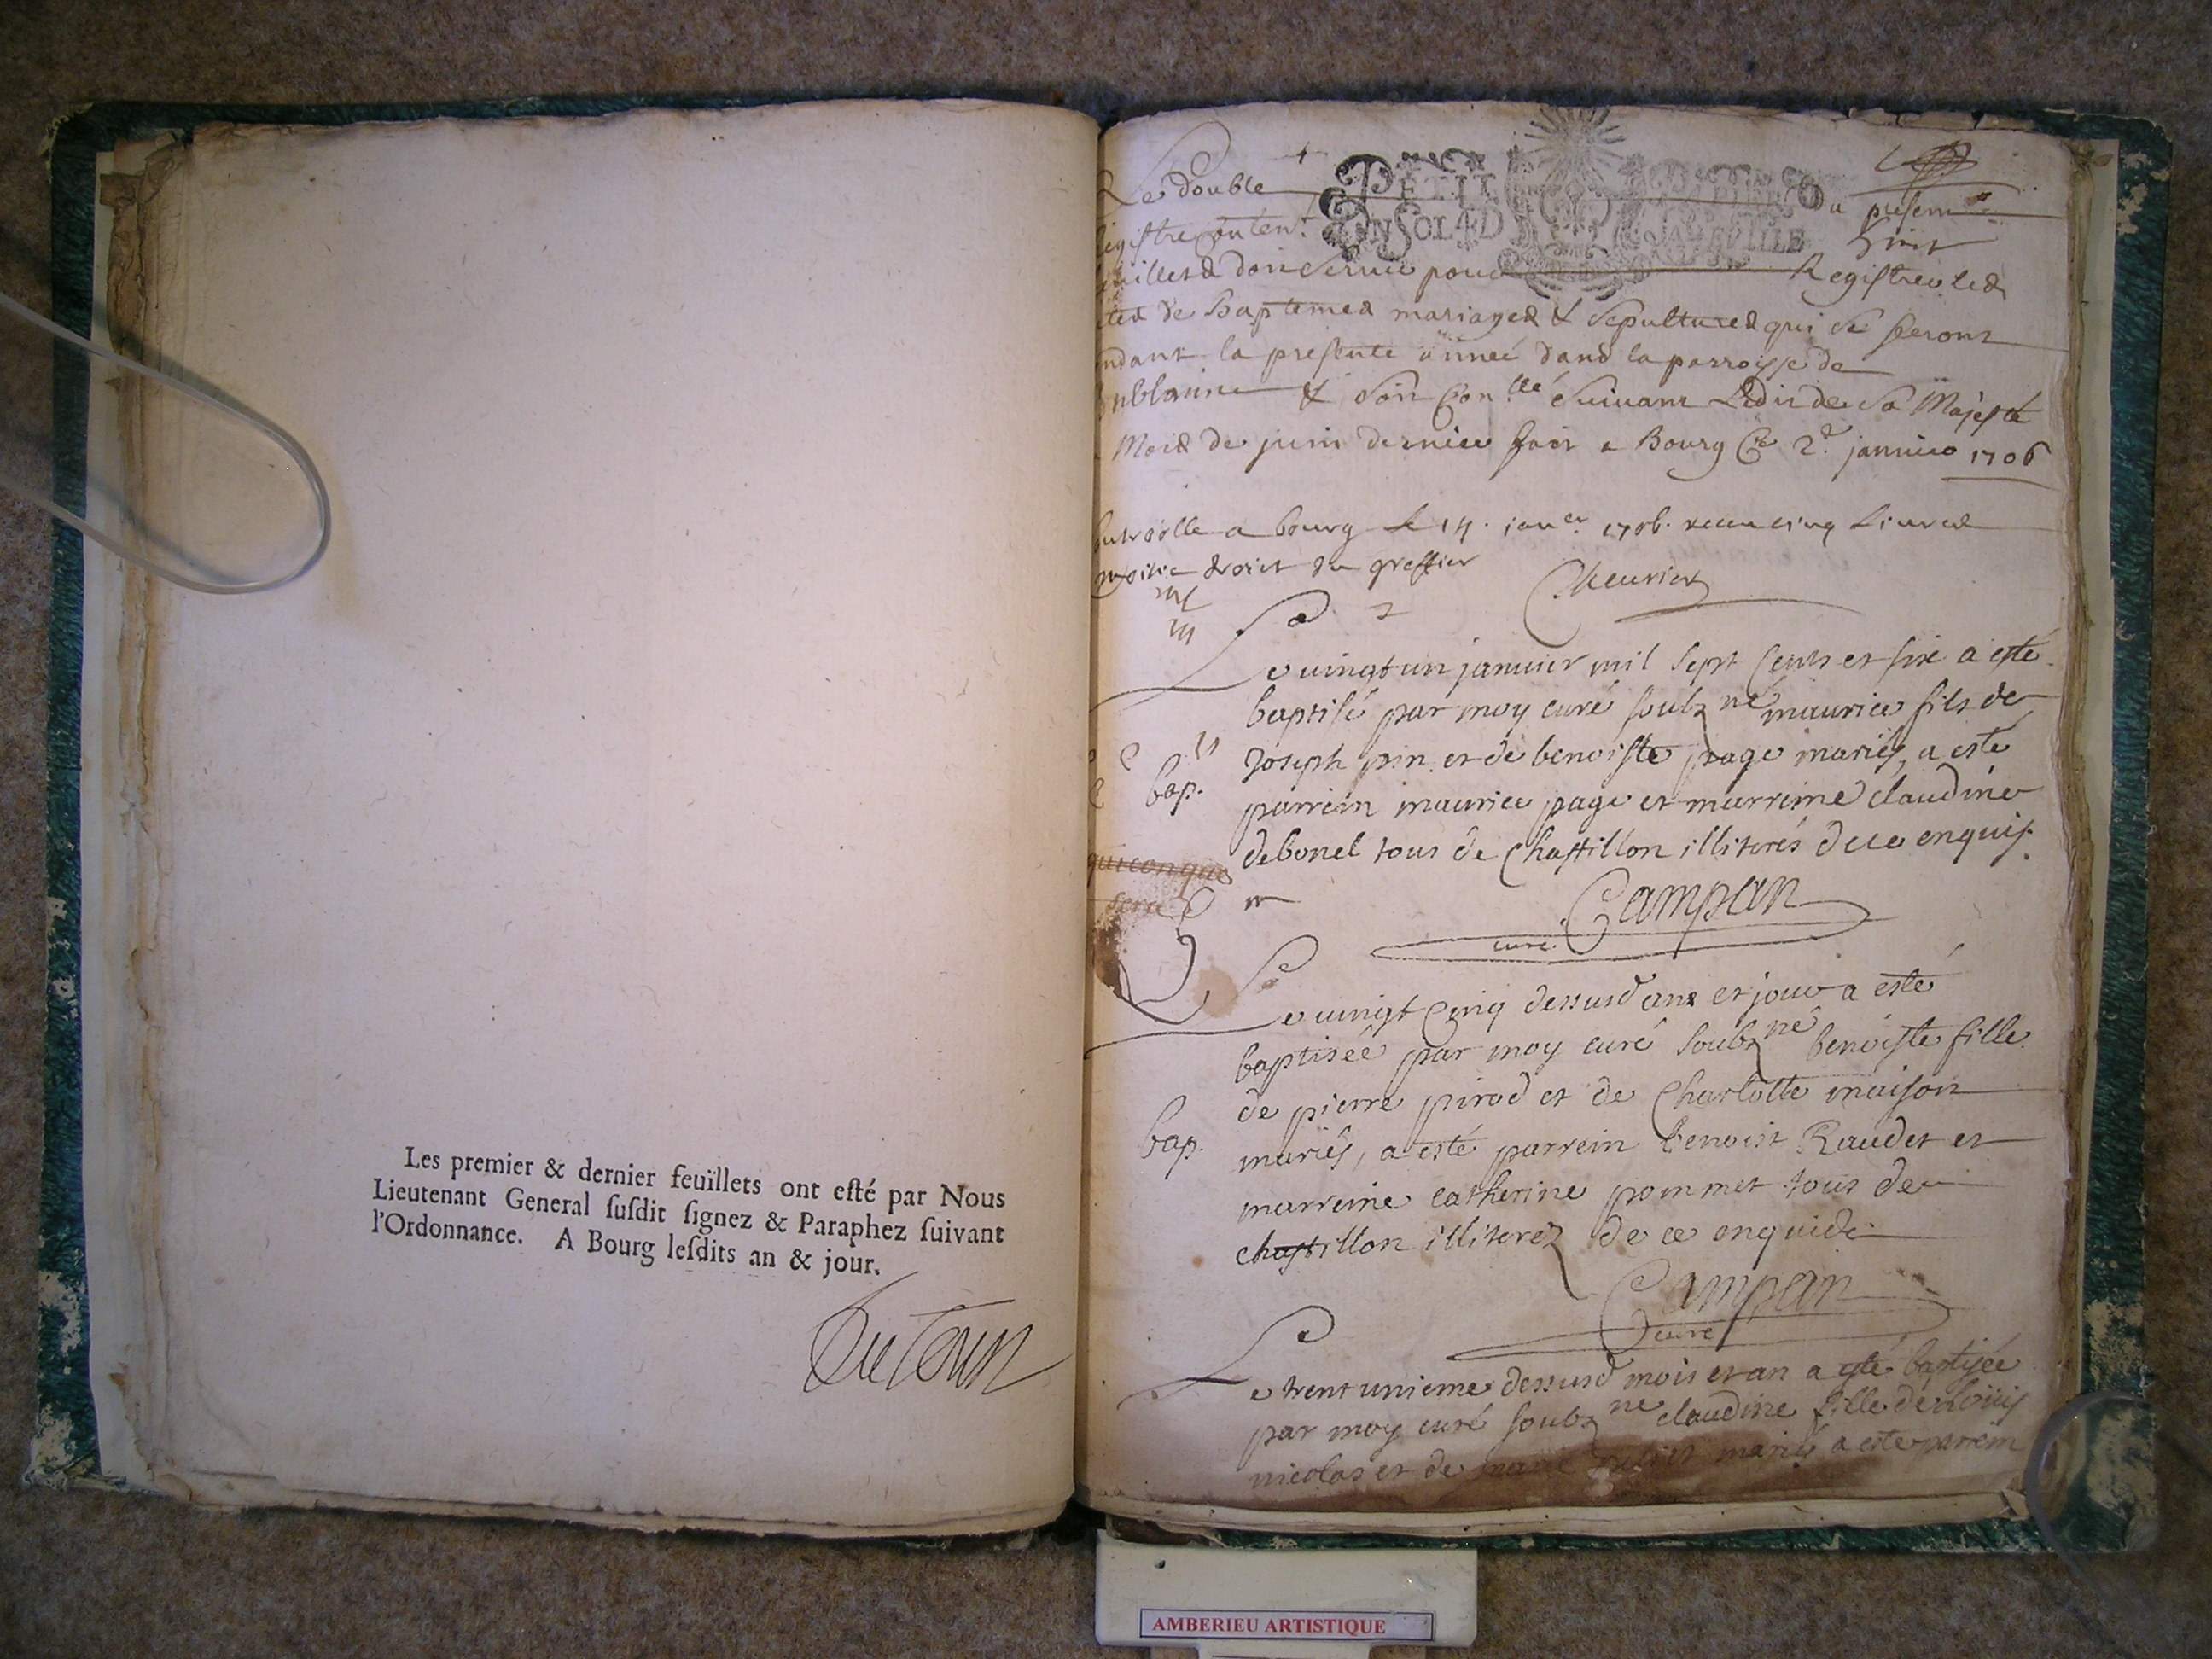 Les premier & dernier feüillets ont eſté par Nous
Lieutenant General ſuſdit ſignez & Paraphez ſuivant
l'Ordonnance. A Bourg leſdits an & jour.
Le double
PETIT PAPIER
UN SOL
du present
Registre conten.t huit
feuillets doit servir pour Registrer les
actes de Baptemes mariages & sepultures qui se feront
pendant la presente année dans la parroisse de
& soit suivant Ledit de Sa Majesté
Mois de juin dernier fait a Bourg ce 2.e janvier 1706
a bourg le 14. janu.er 1706. receu cinq Liures
moitie droict du greffier
Cheurier
Le uingt un januier mil sept cents et six a esté
baptisé par moy curé soubz.né maurice fils de
bap.
Joseph pin et de benoiste page mariés, a esté
parrein maurice page et marreine claudine
debonel tous de Chastillon illiterés de ce enquis.
quiconque
sera
Campan
curé
Le uingt cinq dessusd ans et jour a esté
baptisée par moy curé soubz.né benoiste fille
de pierre pirod et de Charlotte maison
bap.
mariés, a esté parrein benoist Raudet et
marreine catherine pommet tous de
chastillon illiterez de ce enquis
Campan
curé
Le trent unieme dessusd mois et an a esté baptisée
par moy curé soubz.né claudine fille de Loüis
nicolas et de mariés a esté parrein
AMBERIEU ARTISTIQUE